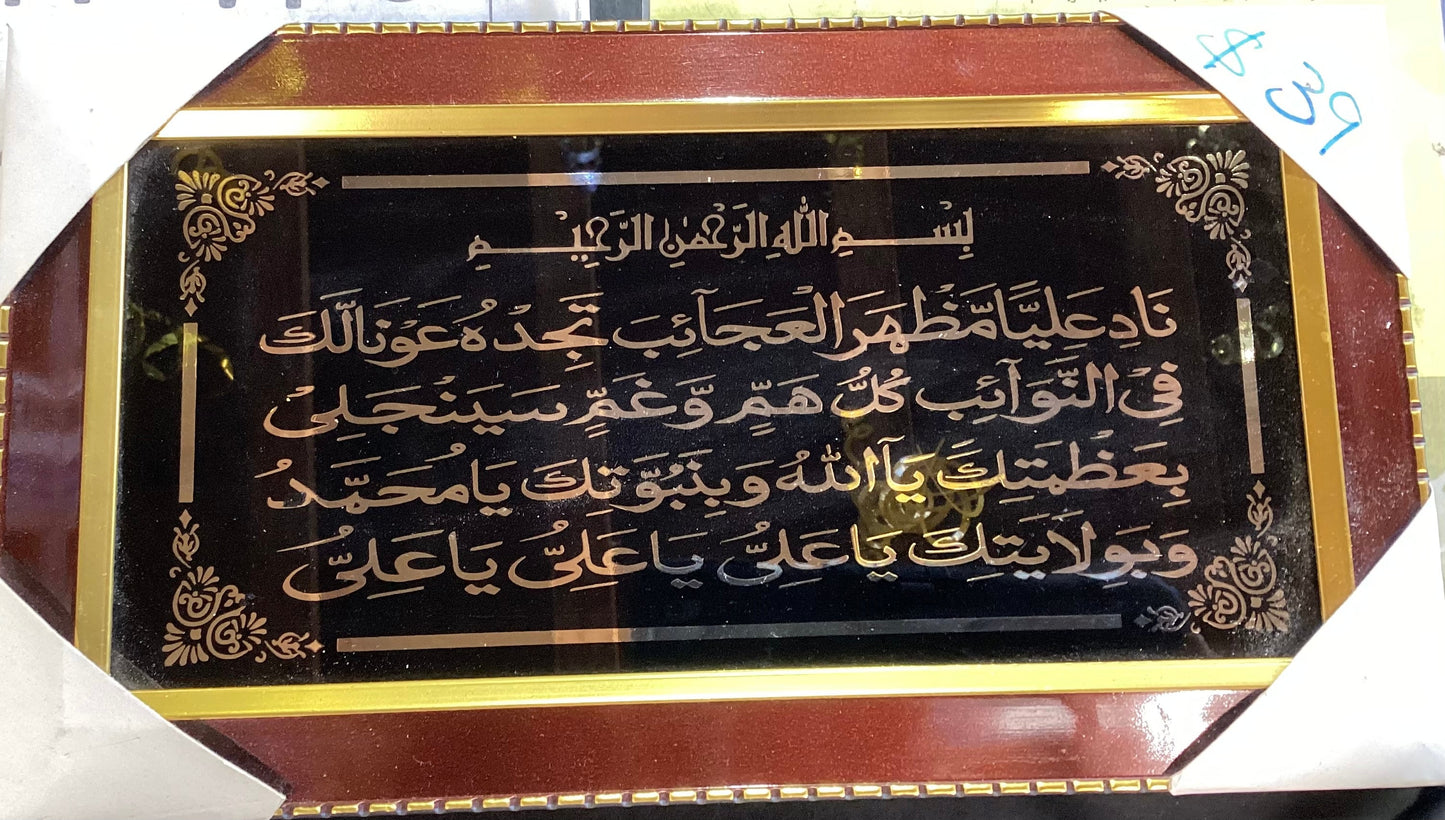 $ 39
بِسْمِ اللهِ الرَّحْمٰنِ الرَّحِيْمِ
نَادِ عَلِيًّا مَّظْهَرَ الْعَجَآئِبَ تَجِدْهُ عَوْنَالَّكَ
فِى النَّوَآئِبِ كُلُّ هَمٍّ وَّغَمٍّ سَيَنْجَلِىْ
بِعَظْمَتِكَ يَآاَللهُ وَبِنَبُوَّتِكَ يَامُحَمَّدُ
وَبِوِلَايَتِكَ يَاعَلِىُّ يَاعَلِىُّ يَاعَلِىُّ